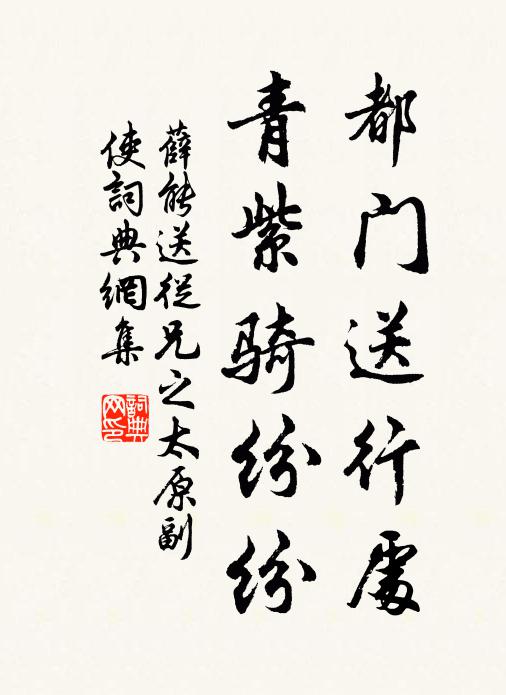 都門送行處
青紫骑纷纷
薛能送從兄之太原副
使詞典網集
詞典
网印